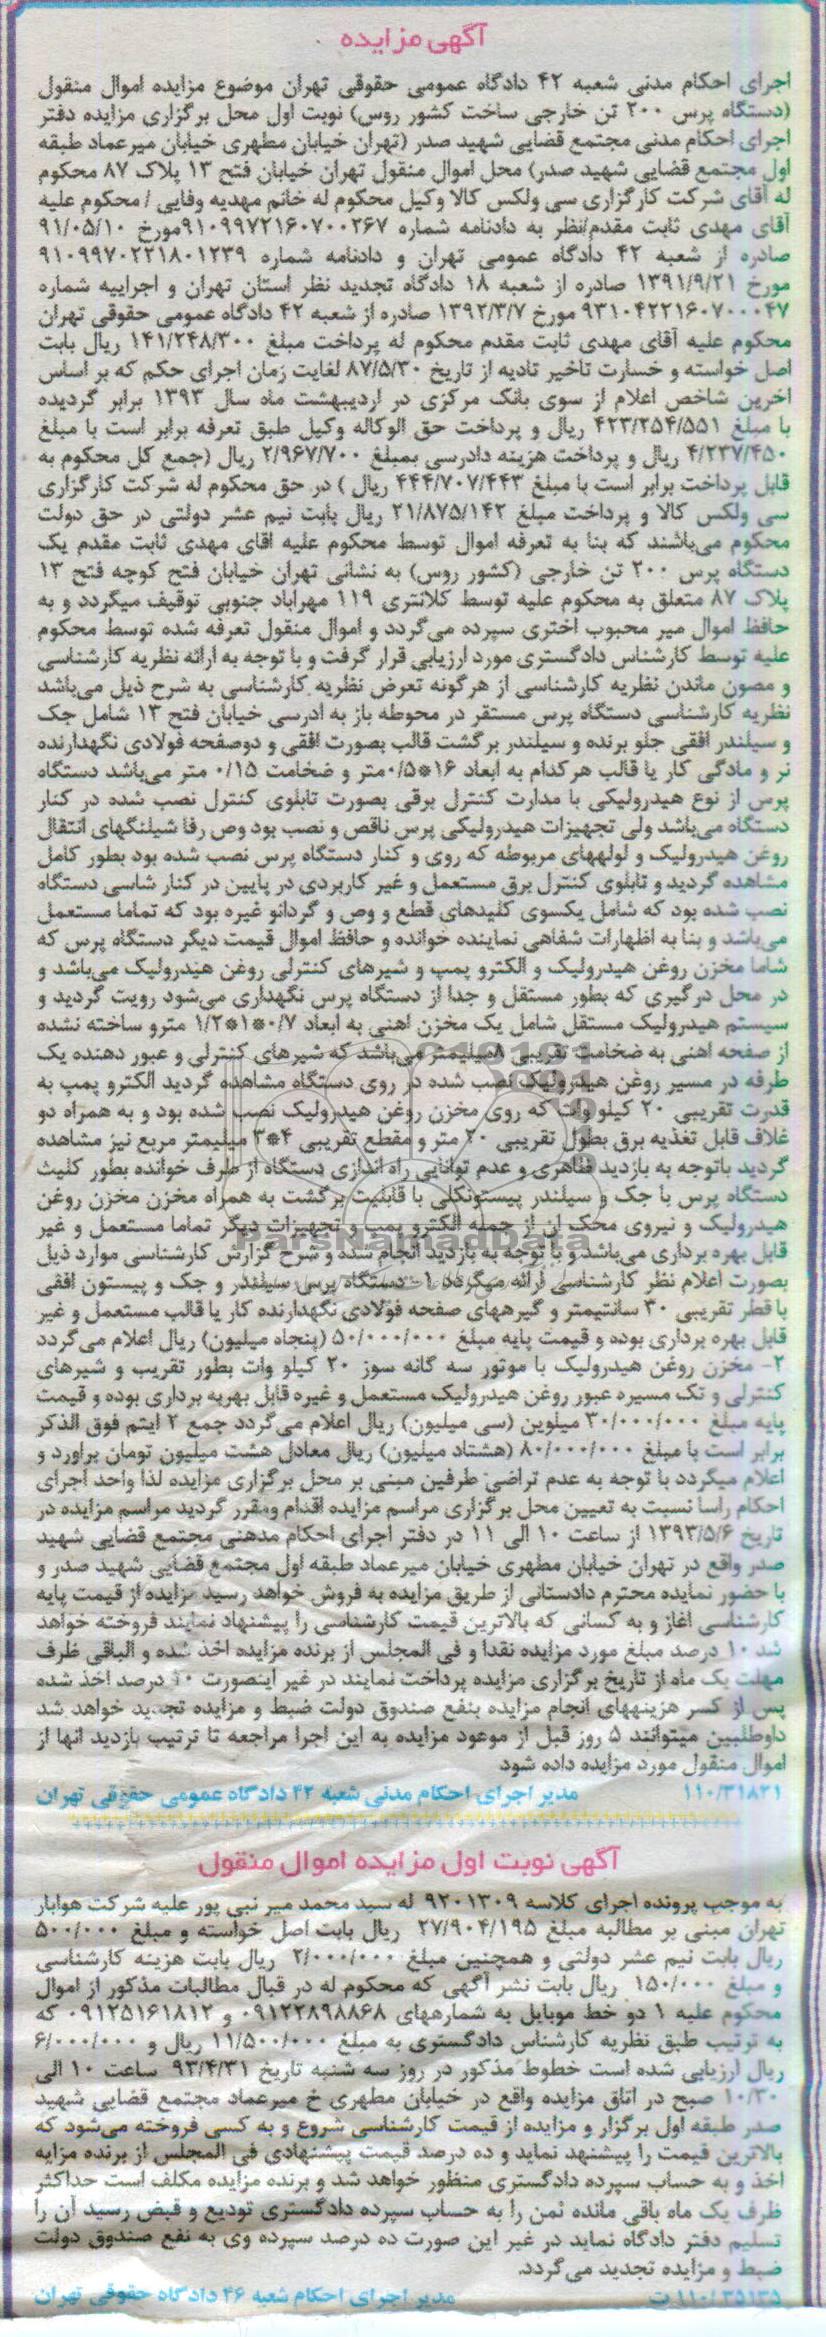 آگهی مزایده
اجرای احکام مدنی شعبه ۴۲ دادگاه عمومی حقوقی تهران موضوع مزایده اموال منقول
(دستگاه پرس ۲۰۰ تن خارجی ساخت کشور روس) نوبت اول محل برگزاری مزایده دفتر
اجرای احکام مدنی مجتمع قضایی شهید صدر (تهران خیابان مطهری خیابان میرعماد طبقه
اول مجتمع قضایی شهید صدر) محل اموال منقول تهران خیابان فتح ۱۳ پلاک ۸۷ محکوم
له آقای شرکت کارگزاری سی ولکس کالا وکیل محکوم له خانم مهدیه وفایی / محکوم علیه
آقای مهدی ثابت مقدم/نظر به دادنامه شماره ۹۱۰۹۹۷۲۱۶۰۷۰۰۲۶۷مورخ ۹۱/۰۵/۱۰
صادره از شعبه ۴۲ دادگاه عمومی تهران و دادنامه شماره ۹۱۰۹۹۷۰۲۲۱۸۰۱۲۳۹
مورخ ۱۳۹۱/۹/۲۱ صادره از شعبه ۱۸ دادگاه تجدید نظر استان تهران و اجراییه شماره
۹۳۱۰۴۲۲۱۶۰۷۰۰۰۴۷ مورخ ۱۳۹۲/۳/۷ صادره از شعبه ۴۲ دادگاه عمومی حقوقی تهران
محکوم علیه آقای مهدی ثابت مقدم محکوم له پرداخت مبلغ ۱۴۱/۲۴۸/۳۰۰ ریال بابت
اصل خواسته و خسارت تاخیر تادیه از تاریخ ۸۷/۵/۳۰ لغایت زمان اجرای حکم که بر اساس
اخرین شاخص اعلام از سوی بانک مرکزی در اردیبهشت ماه سال ۱۳۹۳ برابر گردیده
با مبلغ ۴۲۳/۲۵۴/۵۵۱ ریال و پرداخت حق الوکاله وکیل طبق تعرفه برابر است با مبلغ
۴/۲۳۷/۴۵۰ ریال و پرداخت هزینه دادرسی بمبلغ ۲/۹۶۷/۷۰۰ ریال (جمع کل محکوم به
قابل پرداخت برابر است با مبلغ ۴۴۴/۷۰۷/۴۴۳ ریال ) در حق محکوم له شرکت کارگزاری
سی ولکس کالا و پرداخت مبلغ ۲۱/۸۷۵/۱۴۲ ریال بابت نیم عشر دولتی در حق دولت
محکوم می‌باشند که بنا به تعرفه اموال توسط محکوم علیه اقای مهدی ثابت مقدم یک
دستگاه پرس ۲۰۰ تن خارجی (کشور روس) به نشانی تهران خیابان فتح کوچه فتح ۱۳
پلاک ۸۷ متعلق به محکوم علیه توسط کلانتری ۱۱۹ مهراباد جنوبی توقیف میگردد و به
حافظ اموال میر محبوب اختری سپرده می‌گردد و اموال منقول تعرفه شده توسط محکوم
علیه توسط کارشناس دادگستری مورد ارزیابی قرار گرفت و با توجه به ارائه نظریه کارشناسی
و مصون ماندن نظریه کارشناسی از هرگونه تعرض نظریه کارشناسی به شرح ذیل می‌باشد
نظریه کارشناسی دستگاه پرس مستقر در محوطه باز به ادرسی خیابان فتح ۱۳ شامل جک
و سیلندر افقی جلو برنده و سیلندر برگشت قالب بصورت افقی و دوصفحه فولادی نگهدارنده
نر و مادگی کار یا قالب هرکدام به ابعاد ۱۶*۰/۵متر و ضخامت ۰/۱۵ متر می‌باشد دستگاه
پرس از نوع هیدرولیکی با مدارت کنترل برقی بصورت تابلوی کنترل نصب شده در کنار
دستگاه می‌باشد ولی تجهیزات هیدرولیکی پرس ناقص و نصب بود وص رفا شیلنگهای انتقال
روغن هیدرولیک و لولههای مربوطه که روی و کنار دستگاه پرس نصب شده بود بطور کامل
مشاهده گردید و تابلوی کنترل برق مستعمل و غیر کاربردی در پایین در کنار شاسی دستگاه
نصب شده بود که شامل یکسوی کلیدهای قطع و وص و گردانو غیره بود که تماما مستعمل
می‌باشد و بنا به اظهارات شفاهی نماینده خوانده و حافظ اموال قیمت دیگر دستگاه پرس که
شاما مخزن روغن هیدرولیک و الکترو پمپ و شیرهای کنترلی روغن هیدرولیک می‌باشد و
در محل درگیری که بطور مستقل و جدا از دستگاه پرس نگهداری می‌شود رویت گردید و
سیستم هیدرولیک مستقل شامل یک مخزن اهنی به ابعاد ۰/۷*۱*۱/۲ مترو ساخته نشده
از صفحه اهنی به ضخامت تقریبی ۸میلیمتر می‌باشد که شیرهای کنترلی و عبور دهنده یک
طرفه در مسیر روغن هیدرولیک نصب شده در روی دستگاه مشاهده گردید الکترو پمپ به
قدرت تقریبی ۲۰ کیلو وات که روی مخزن روغن هیدرولیک نصب شده بود و به همراه دو
غلاف قابل تغذیه برق بطول تقریبی ۲۰ متر و مقطع تقریبی ۴*۳ میلیمتر مربع نیز مشاهده
گردید باتوجه به بازدید ظاهری و عدم توانایی راه اندازی دستگاه از طرف خوانده بطور کلیت
دستگاه پرس با جک و سیلندر پیستونکلی با قابلیت برگشت به همراه مخزن مخزن روغن
هیدرولیک و نیروی محک ان از جمله الکترو پمپ و تجهیزات دیگر تماما مستعمل و غیر
قابل بهره برداری می‌باشد و با توجه به بازدید انجام شده و شرح گزارش کارشناسی موارد ذیل
بصورت اعلام نظر کارشناسی ارائه میگردد ۱- دستگاه پرس سیلندر و جک و پیستون افقی
با قطر تقریبی ۳۰ سانتیمتر و گیرههای صفحه فولادی نگهدارنده کار یا قالب مستعمل و غیر
قابل بهره برداری بوده و قیمت پایه مبلغ ۵۰/۰۰۰/۰۰۰ (پنجاه میلیون) ریال اعلام می‌گردد
۲- مخزن روغن هیدرولیک با موتور سه گانه سوز ۲۰ کیلو وات بطور تقریب و شیرهای
کنترلی و تک مسیره عبور روغن هیدرولیک مستعمل و غیره قابل بهربه برداری بوده و قیمت
پایه مبلغ ۳۰/۰۰۰/۰۰۰ میلوین (سی میلیون) ریال اعلام می‌گردد جمع ۲ ایتم فوق الذکر
برابر است با مبلغ ۸۰/۰۰۰/۰۰۰ (هشتاد میلیون) ریال معادل هشت میلیون تومان براورد و
اعلام میگردد با توجه به عدم تراضی طرفین مبنی بر محل برگزاری مزایده لذا واحد اجرای
احکام راسا نسبت به تعیین محل برگزاری مراسم مزایده اقدام ومقرر گردید مراسم مزایده در
تاریخ ۱۳۹۳/۵/۶ از ساعت ۱۰ الی ۱۱ در دفتر اجرای احکام مدهنی مجتمع قضایی شهید
صدر واقع در تهران خیابان مطهری خیابان میرعماد طبقه اول مجتمع قضایی شهید صدر و
با حضور نماینده محترم دادستانی از طریق مزایده به فروش خواهد رسید مزایده از قیمت پایه
کارشناسی اغاز و به کسانی که بالاترین قیمت کارشناسی را پیشنهاد نمایند فروخته خواهد
شد ۱۰ درصد مبلغ مورد مزایده نقدا و فی المجلس از برنده مزایده اخذ شده و الباقی ظرف
مهلت یک ماه از تاریخ برگزاری مزایده پرداخت نمایند در غیر اینصورت ۱۰ درصد اخذ شده
پس از کسر هزینههای انجام مزایده بنفع صندوق دولت ضبط و مزایده تجدید خواهد شد
داوطلبین میتوانند ۵ روز قبل از موعود مزایده به این اجرا مراجعه تا ترتیب بازدید انها از
اموال منقول مورد مزایده داده شود
۱۱۰/۳۱۸۲۱ مدیر اجرای احکام مدنی شعبه ۴۲ دادگاه عمومی حقوقی تهران
آگهی نوبت اول مزایده اموال منقول
به موجب پرونده اجرای کلاسه ۹۲۰۱۳۰۹ له سید محمد میر نبی پور علیه شرکت هوابار
تهران مبنی بر مطالبه مبلغ ۲۷/۹۰۴/۱۹۵ ریال بابت اصل خواسته و مبلغ ۵۰۰/۰۰۰
ریال بابت نیم عشر دولتی و همچنین مبلغ ۲/۰۰۰/۰۰۰ ریال بابت هزینه کارشناسی
و مبلغ ۱۵۰/۰۰۰ ریال بابت نشر آگهی که محکوم له در قبال مطالبات مذکور از اموال
محکوم علیه ۱ دو خط موبایل به شمارههای ۰۹۱۲۲۸۹۸۸۶۸ و ۰۹۱۲۵۱۶۱۸۱۲ که
به ترتیب طبق نظریه کارشناس دادگستری به مبلغ ۱۱/۵۰۰/۰۰۰ ریال و ۶/۰۰۰/۰۰۰
ریال ارزیابی شده است خطوط مذکور در روز سه شنبه تاریخ ۹۳/۴/۳۱ ساعت ۱۰ الی
۱۰/۳۰ صبح در اتاق مزایده واقع در خیابان مطهری خ میرعماد مجتمع قضایی شهید
صدر طبقه اول برگزار و مزایده از قیمت کارشناسی شروع و به کسی فروخته می‌شود که
بالاترین قیمت را پیشنهد نماید و ده درصد قیمت پیشنهادی فی المجلس از برنده مزایه
اخذ و به حساب سپرده دادگستری منظور خواهد شد و برنده مزایده مکلف است حداکثر
ظرف یک ماه باقی مانده ثمن را به حساب سپرده دادگستری تودیع و قبض رسید آن را
تسلیم دفتر دادگاه نماید در غیر این صورت ده درصد سپرده وی به نفع صندوق دولت
ضبط و مزایده تجدید می‌گردد.
۱۱۰/۳۵۱۳۵ ت مدیر اجرای احکام شعبه ۴۶ دادگاه حقوقی تهران
ParsNamadData